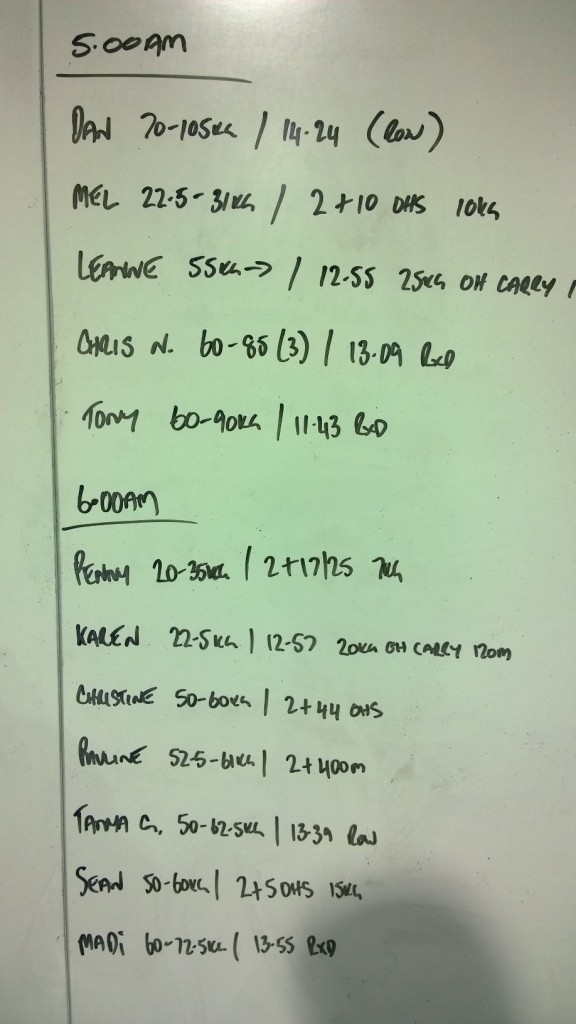 5.00AM
DAN 70-105KG / 14.24 (ROW)
MEL 22.5-31KG / 2+10 OHS 10KG
LEANNE 55KG→ / 12.55 25KG OH CARRY
CHRIS N. 60-85(3) / 13.09 RXD
TONY 60-90KG / 11.43 RXD
6.00AM
PENNY 20-35KG / 2+17/25 7KG
KAREN 22.5KG / 12.57 20KG OH CARRY 120m
CHRISTINE 50-60KG / 2+44 OHS
PAULINE 52.5-61KG / 2+400m
TANIA G. 50-62.5KG / 13.39 ROW
SEAN 50-60KG / 2+5 OHS 15KG
MADi 60-72.5KG / 13.55 RXD